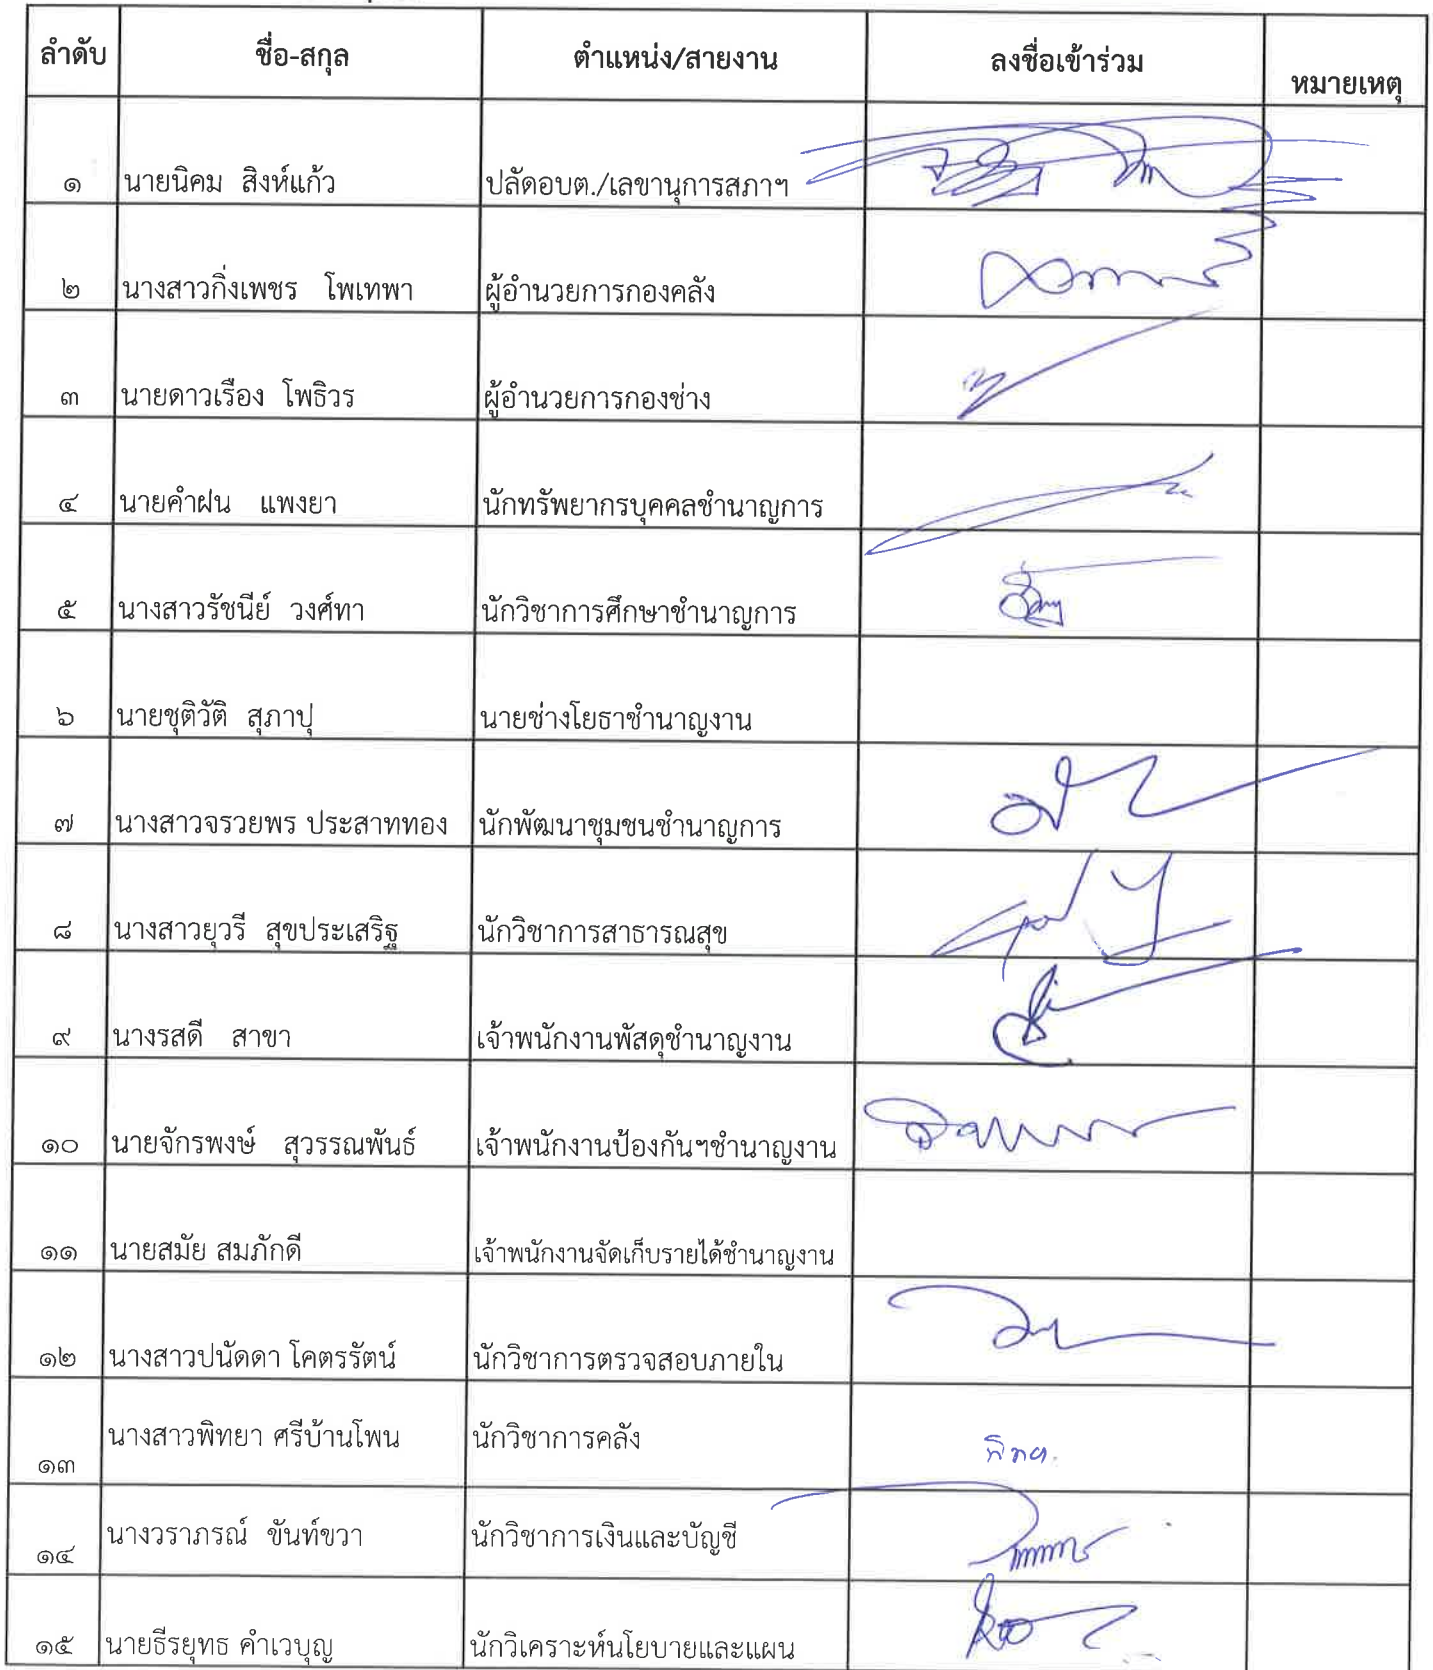 ลำดับ ชื่อ-สกุล ตำแหน่ง/สายงาน ลงชื่อเข้าร่วม หมายเหตุ
๑ นายนิคม สิงห์แก้ว ปลัดอบต./เลขานุการสภาฯ
๒ นางสาวกิ่งเพชร โพเทพา ผู้อำนวยการกองคลัง
๓ นายดาวเรือง โพธิวร ผู้อำนวยการกองช่าง
๔ นายคำฝน แพงยา นักทรัพยากรบุคคลชำนาญการ
๕ นางสาวรัชนีย์ วงศ์ทา นักวิชาการศึกษาชำนาญการ
๖ นายชุติวัติ สุภาปุ นายช่างโยธาชำนาญงาน
๗ นางสาวจรวยพร ประสาททอง นักพัฒนาชุมชนชำนาญการ
๘ นางสาวยุวรี สุขประเสริฐ นักวิชาการสาธารณสุข
๙ นางรสดี สาขา เจ้าพนักงานพัสดุชำนาญงาน
๑๐ นายจักรพงษ์ สุวรรณพันธ์ เจ้าพนักงานป้องกันฯชำนาญงาน
๑๑ นายสมัย สมภักดี เจ้าพนักงานจัดเก็บรายได้ชำนาญงาน
๑๒ นางสาวปนัดดา โคตรรัตน์ นักวิชาการตรวจสอบภายใน
๑๓ นางสาวพิทยา ศรีบ้านโพน นักวิชาการคลัง พิทยา
๑๔ นางวราภรณ์ ขันท์ขวา นักวิชาการเงินและบัญชี
๑๕ นายธีรยุทธ คำเวบุญ นักวิเคราะห์นโยบายและแผน